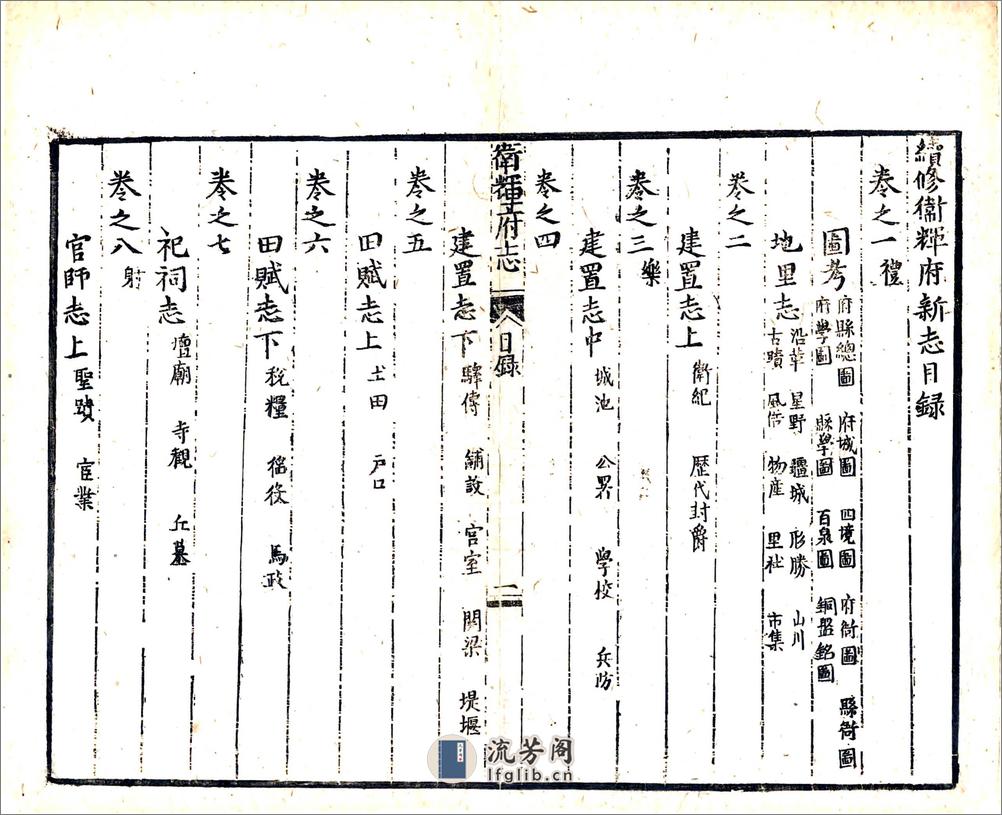 續修衞輝府新志目録
卷之一禮
圖考 府縣總圖 府城圖 四境圖 府衙圖 縣衙圖
府學圖 縣學圖 百泉圖 銅盤銘圖
地里志 沿革 星野 疆域 形勝 山川
古蹟 風俗 物産 里社 市集
卷之二
建置志上 衛紀 歷代封爵
卷之三樂
建置志中 城池 公署 學校 兵防
卷之四
衛輝府志 目録 二
建置志下 驛傳 舖設 宮室 関梁 堤堰
卷之五
田賦志上 土田 戸口
卷之六
田賦志下 税糧 徭役 馬政
卷之七
祀祠志 壇廟 寺觀 丘墓
卷之八射
官師志上 聖蹟 宦業
流芳阁
lfglib.cn